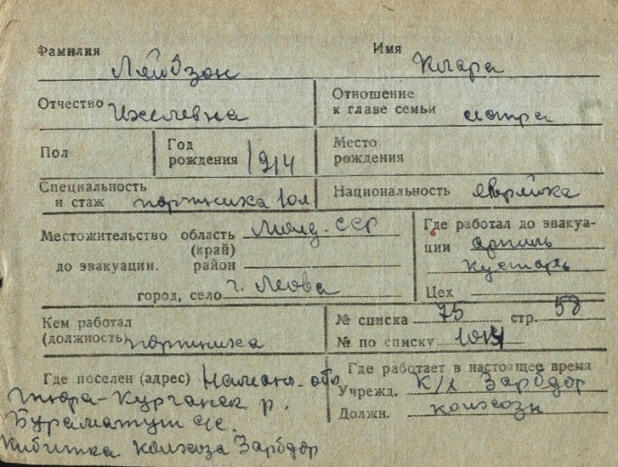 Фамилия Лейбзон Имя Клара
Отчество Ихелевна Отношение к главе семьи сестра
Пол Год рождения 1914 Место рождения
Специальность и стаж портниха 10л Национальность Еврейка
Местожительство область (край) Молд. ССР Где работал до эвакуации артиль
до эвакуации. район кустарь
город, село г. Леова Цех
Кем работал (должность) портниха № списка 75 стр. 58
№ по списку
Где поселен (адрес) Наманг. обл Где работает в настоящее время
Тюра-Курганск р. Учрежд. к/х Зарбдор
с/с. Должн. колхозн
Кибитка колхоза Зарбдор